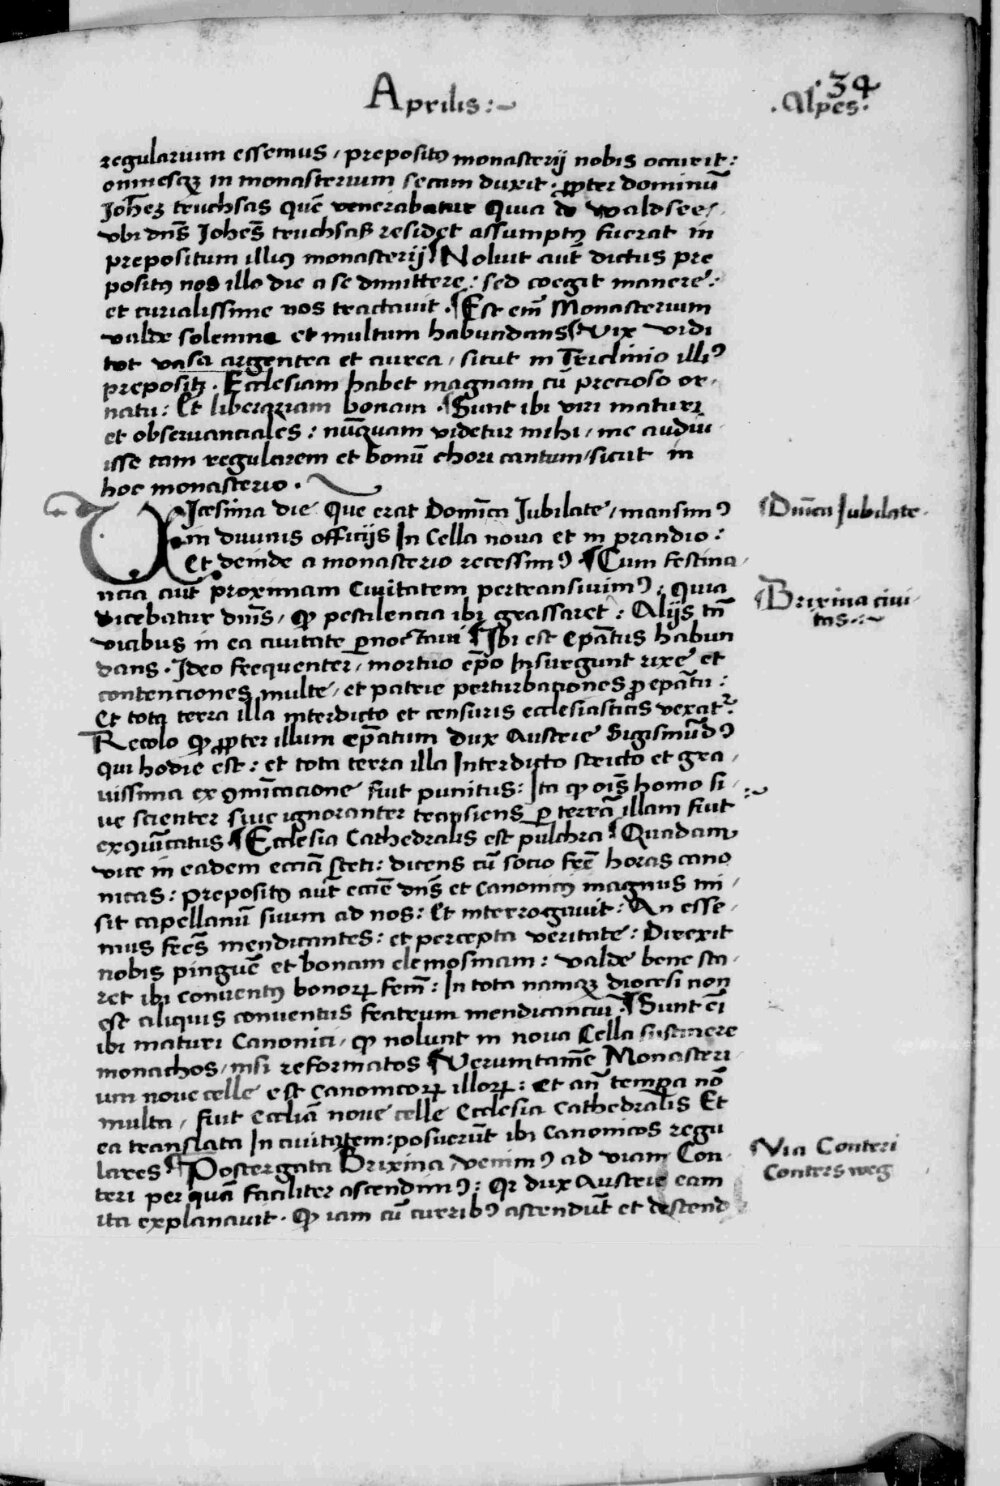 Aprilis:~
.34
.Alpes.
regularium essemus, preposit9 monasterij nobis occurit:
omnesqꝫ in monasterium secum duxit: ꝓpter dominū
Joh̄eꝫ truchsas quē venerabatur Quia de waldsee,
vbi dn̄s Joh̄es truchsaß residet assumpt9 fuerat in
prepositum illi9 monasterij ¶ Noluit aut̄ dictus pre
posit9 nos illo die a se dimittere: sed coegit manere:
et curialissime nos tractauit. ¶ Est em̄ Monasterium
valde solemne et multum habundans ¶ Vix vidi
tot vasa argentea et aurea, sicut in Triclinio illi9
prepositi. Ecclesiam habet magnam cū precioso or,
natu: Et liberariam bonam. ¶ Sunt ibi viri maturi
et obseruanciales: nūquam videtur mihi, me audiu,
isse tam regularem et bonū chori cantum, sicut in
hoc monasterio.
VIcesima die Que erat Domīca Jubilate, mansim9
in diuinis officijs In Cella noua et in prandio:
Et deinde a monasterio recessim9. ¶ Cum festina,
ncia aut̄ proximam Ciuitatem pertransiuim9: Quia
dicebatur dn̄s, qꝫ pestilencia ibi grassaret̄: Alijs tn̄
vicibus in ea ciuitate ꝑnoctaui ¶ Ibi est ep̄atus habun
dans. Ideo frequenter, mortuo ep̄o Insurgunt rixe et
contenciones multe, et patrie perturbationes ꝓ ep̄atu:
Et tota terra illa interdicto et censuris ecclesiasticis vexat̄r
Recolo qꝫ ꝓpter illum ep̄atum dux Austrie Sigismūd9
qui hodie est: et tota terra illa Interdicto stricto et gra,
uissima exꝯmīcacione fuit punitus: Ita qꝫ oīs homo si,
ue scienter siue ignoranter transiens ꝑ terrā illam fuit
exꝯmūicatus ¶ Ecclesia Cathedralis est pulchra ¶ Quadam
vice in eadem ecciā steti: dicens cū socio fr̄e horas cano
nicas: preposit9 aut̄ eccie dn̄s et canonic9 magnus mi,
sit capellanū suum ad nos: Et interrogauit: An esse,
mus fr̄es mendicantes: et percepta veritate: Direxit
nobis pinguē et bonam elemosinam: valde bene sta,
ret ibi conuent9 bonoꝝ fr̄m: In tota namqꝫ diocesi non
est aliquis conuentus fratrum mendicanciū. ¶ Sunt eī
ibi maturi Canonici, qꝫ nolunt in noua Cella sustinere
monachos, nisi reformatos ¶ Verumtamē Monasteri
um noue celle est canonicoꝝ illoꝝ: et an̄ tempa nō
multa, fuit ecclīa noue celle Ecclesia cathedralis Et
ea translata In ciuitatem: posuerūt ibi canonicos regu
lares ¶ Postergata Brixina, venim9 ad viam Con,
teri per quā faciliter ascendim9: Qr dux Austrie eam
ita explanauit. Qꝫ iam cū currib9 ascendūt et descend
¶ Dn̄ica Jubilate.
¶ Brixina ciui,
tas.:~
¶ Via Conteri
Conters weg